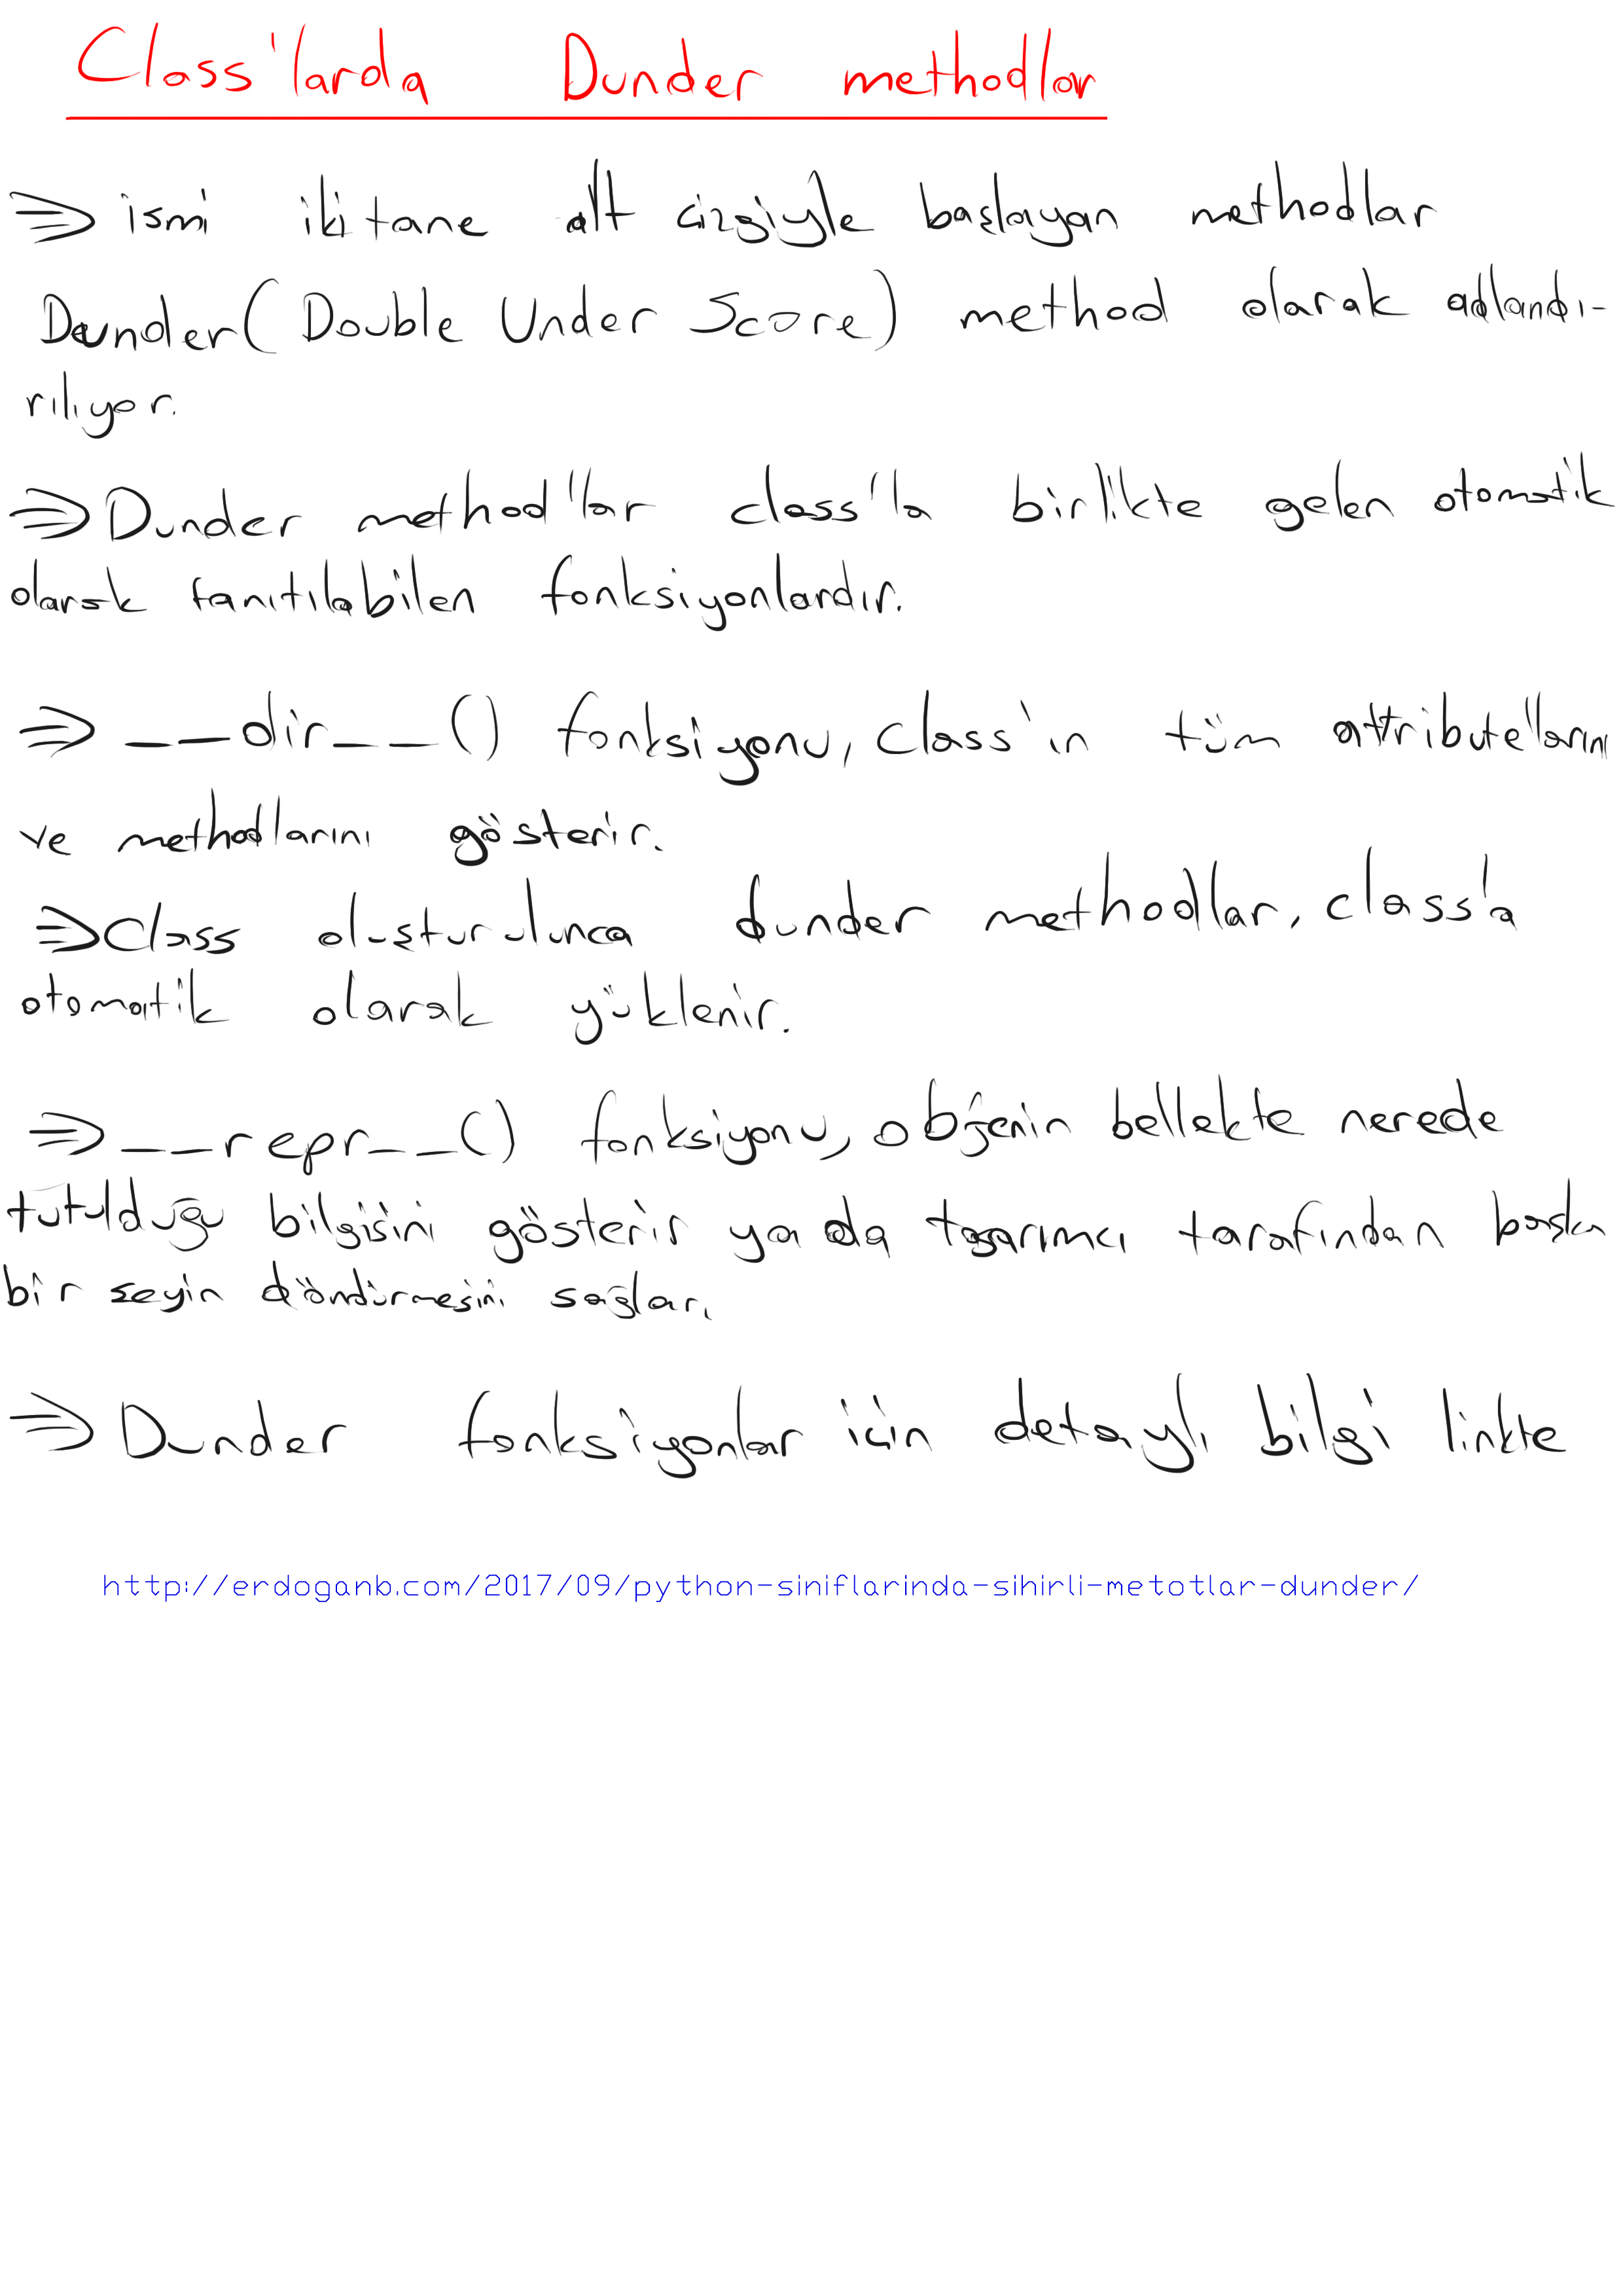 Class'larda Dunder methodlar
⇒ ismi iki tane alt çizgiyle başlayan methodlar
Dunder(Double Under Score) method olarak adlandı-
rılıyor.
⇒ Dunder method'lar class'la birlikte gelen otomatik
olarak tanıtılabilen fonksiyonlardır.
⇒ __dir__() fonksiyonu, class'ın tüm attributelarını
ve methodlarını gösterir.
⇒ Class oluşturulunca dunder methodlar, class'a
otomatik olarak yüklenir.
⇒ __repr__() fonksiyonu, objenin bellekte nerede
tutulduğu bilgisini gösterir ya da tasarımcı tarafından başka
bir şeyin döndürmesini sağlar.
⇒ Dunder fonksiyonlar için detaylı bilgi linkte
http://erdoganb.com/2017/09/python-siniflarinda-sihirli-metotlar-dunder/